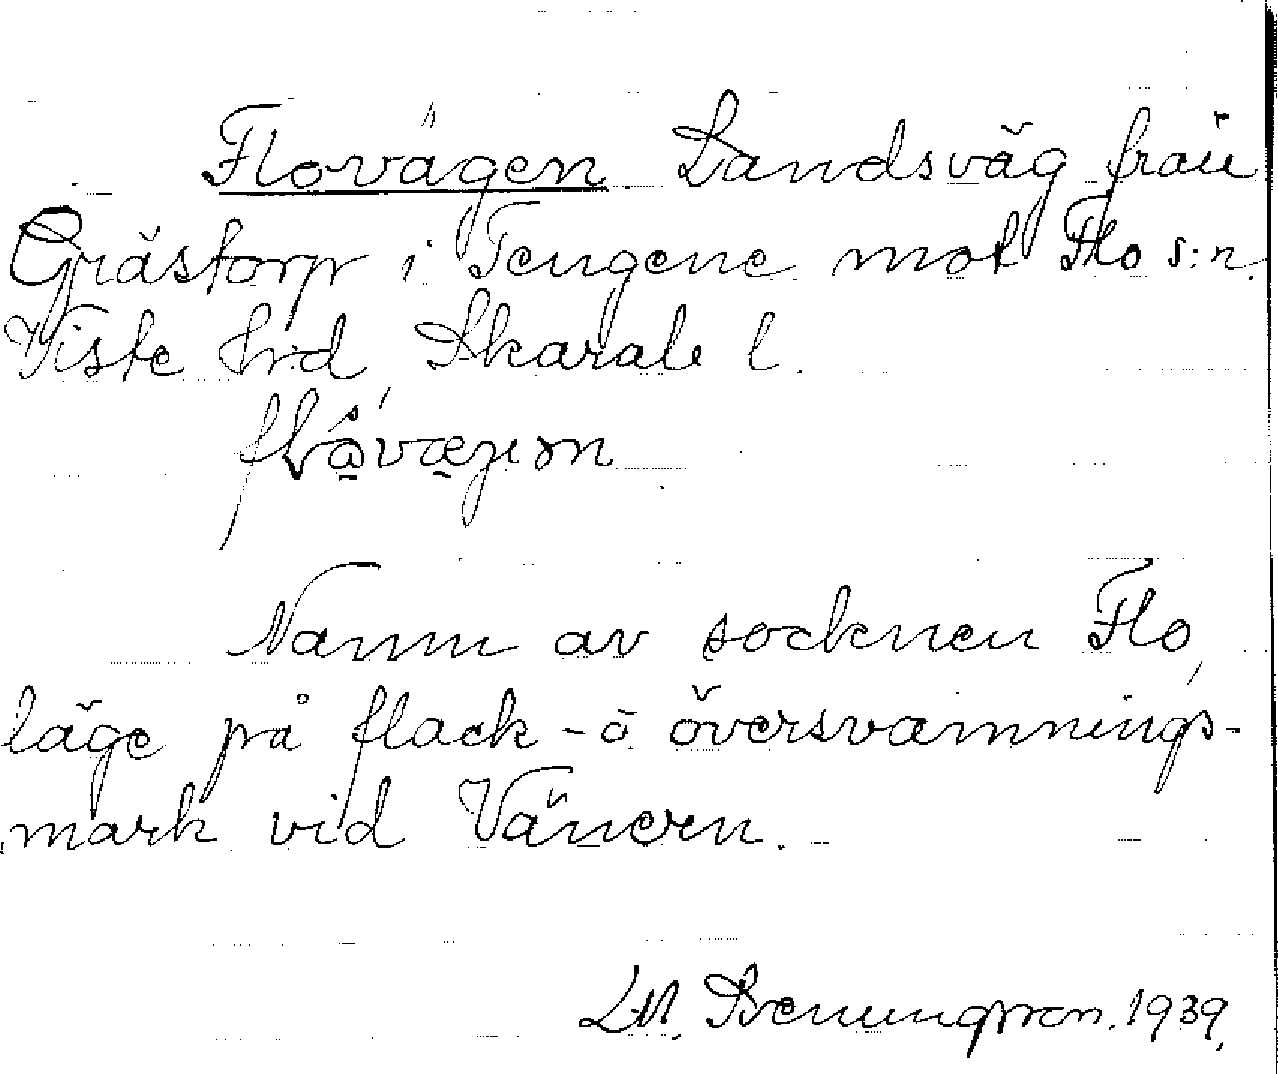 Flovägen Landsväg från
Grästorp i Tengene mot Flo s:n.
Viste hrd Skarab. l.
Namn av socknen Flo,
läge på flack- o översvämnings-
mark vid Vänern.
1939.